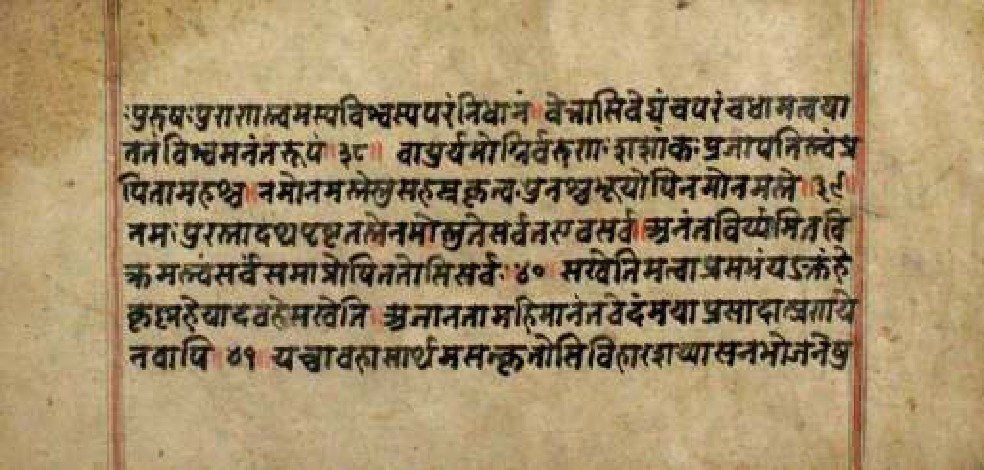 ःपुरुषःपुराणस्त्वमस्यविश्वस्यपरंनिधानं॥ वेत्तासिवेद्यंचपरंचधामत्वया
ततंविश्वमनंतरूपं ३८॥ वायुर्यमोग्निर्वरुणःशशांकःप्रजापतिस्त्वंप्र
पितामहश्च॥नमोनमस्तेस्तुसहस्रकृत्वःपुनश्चभूयोपिनमोनमस्ते॥३९
नमःपुरस्तादथपृष्टतस्तेनमोस्तुतेसर्वतएवसर्व॥अनंतविर्य्यामितवि
क्रमस्त्वंसर्वंसमाप्नोषिततोसिसर्वः॥४० सखेतिमत्वाप्रसभंयऽक्तंहे
कृष्णहेयादवहेसखेति॥अजानतामहिमानंतवेदंमयाप्रसादात्प्रणये
नवापि॥४१ यच्चावहासार्थमसत्कृतोसिविहारशय्यासनभोजनेषु